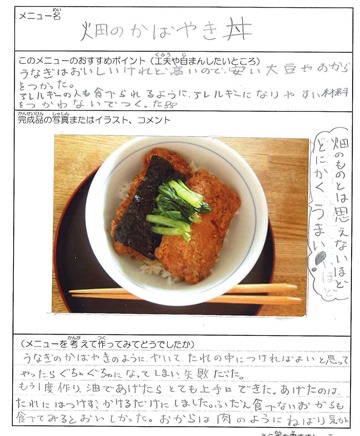 メニュー名
畑のかばやき丼
このメニューのおすすめポイント(工夫や自まんしたいところ)
うなぎはおいしいけれど、高いので、安い大豆やおから
をつかった。
アレルギーの人も食べられるように、アレルギーになりやすい材料
をつかわないでつくった
完成品の写真またはイラスト、コメント
畑のものとは思えないほど
とにかくうまい
(メニューを考えて作ってみてどうでしたか)
うなぎのかばやきのように、やいてたれの中につければよいと思って
やったらぐちゃぐちゃになってしまい失敗だった。
もう1度作り、油であげたらとても上手にできた。あげたのは、
たれにはつけず、かけるだけにしました。ふだん食べないおからも
食べてみるとおいしかった。おからは肉のようにねばり気が